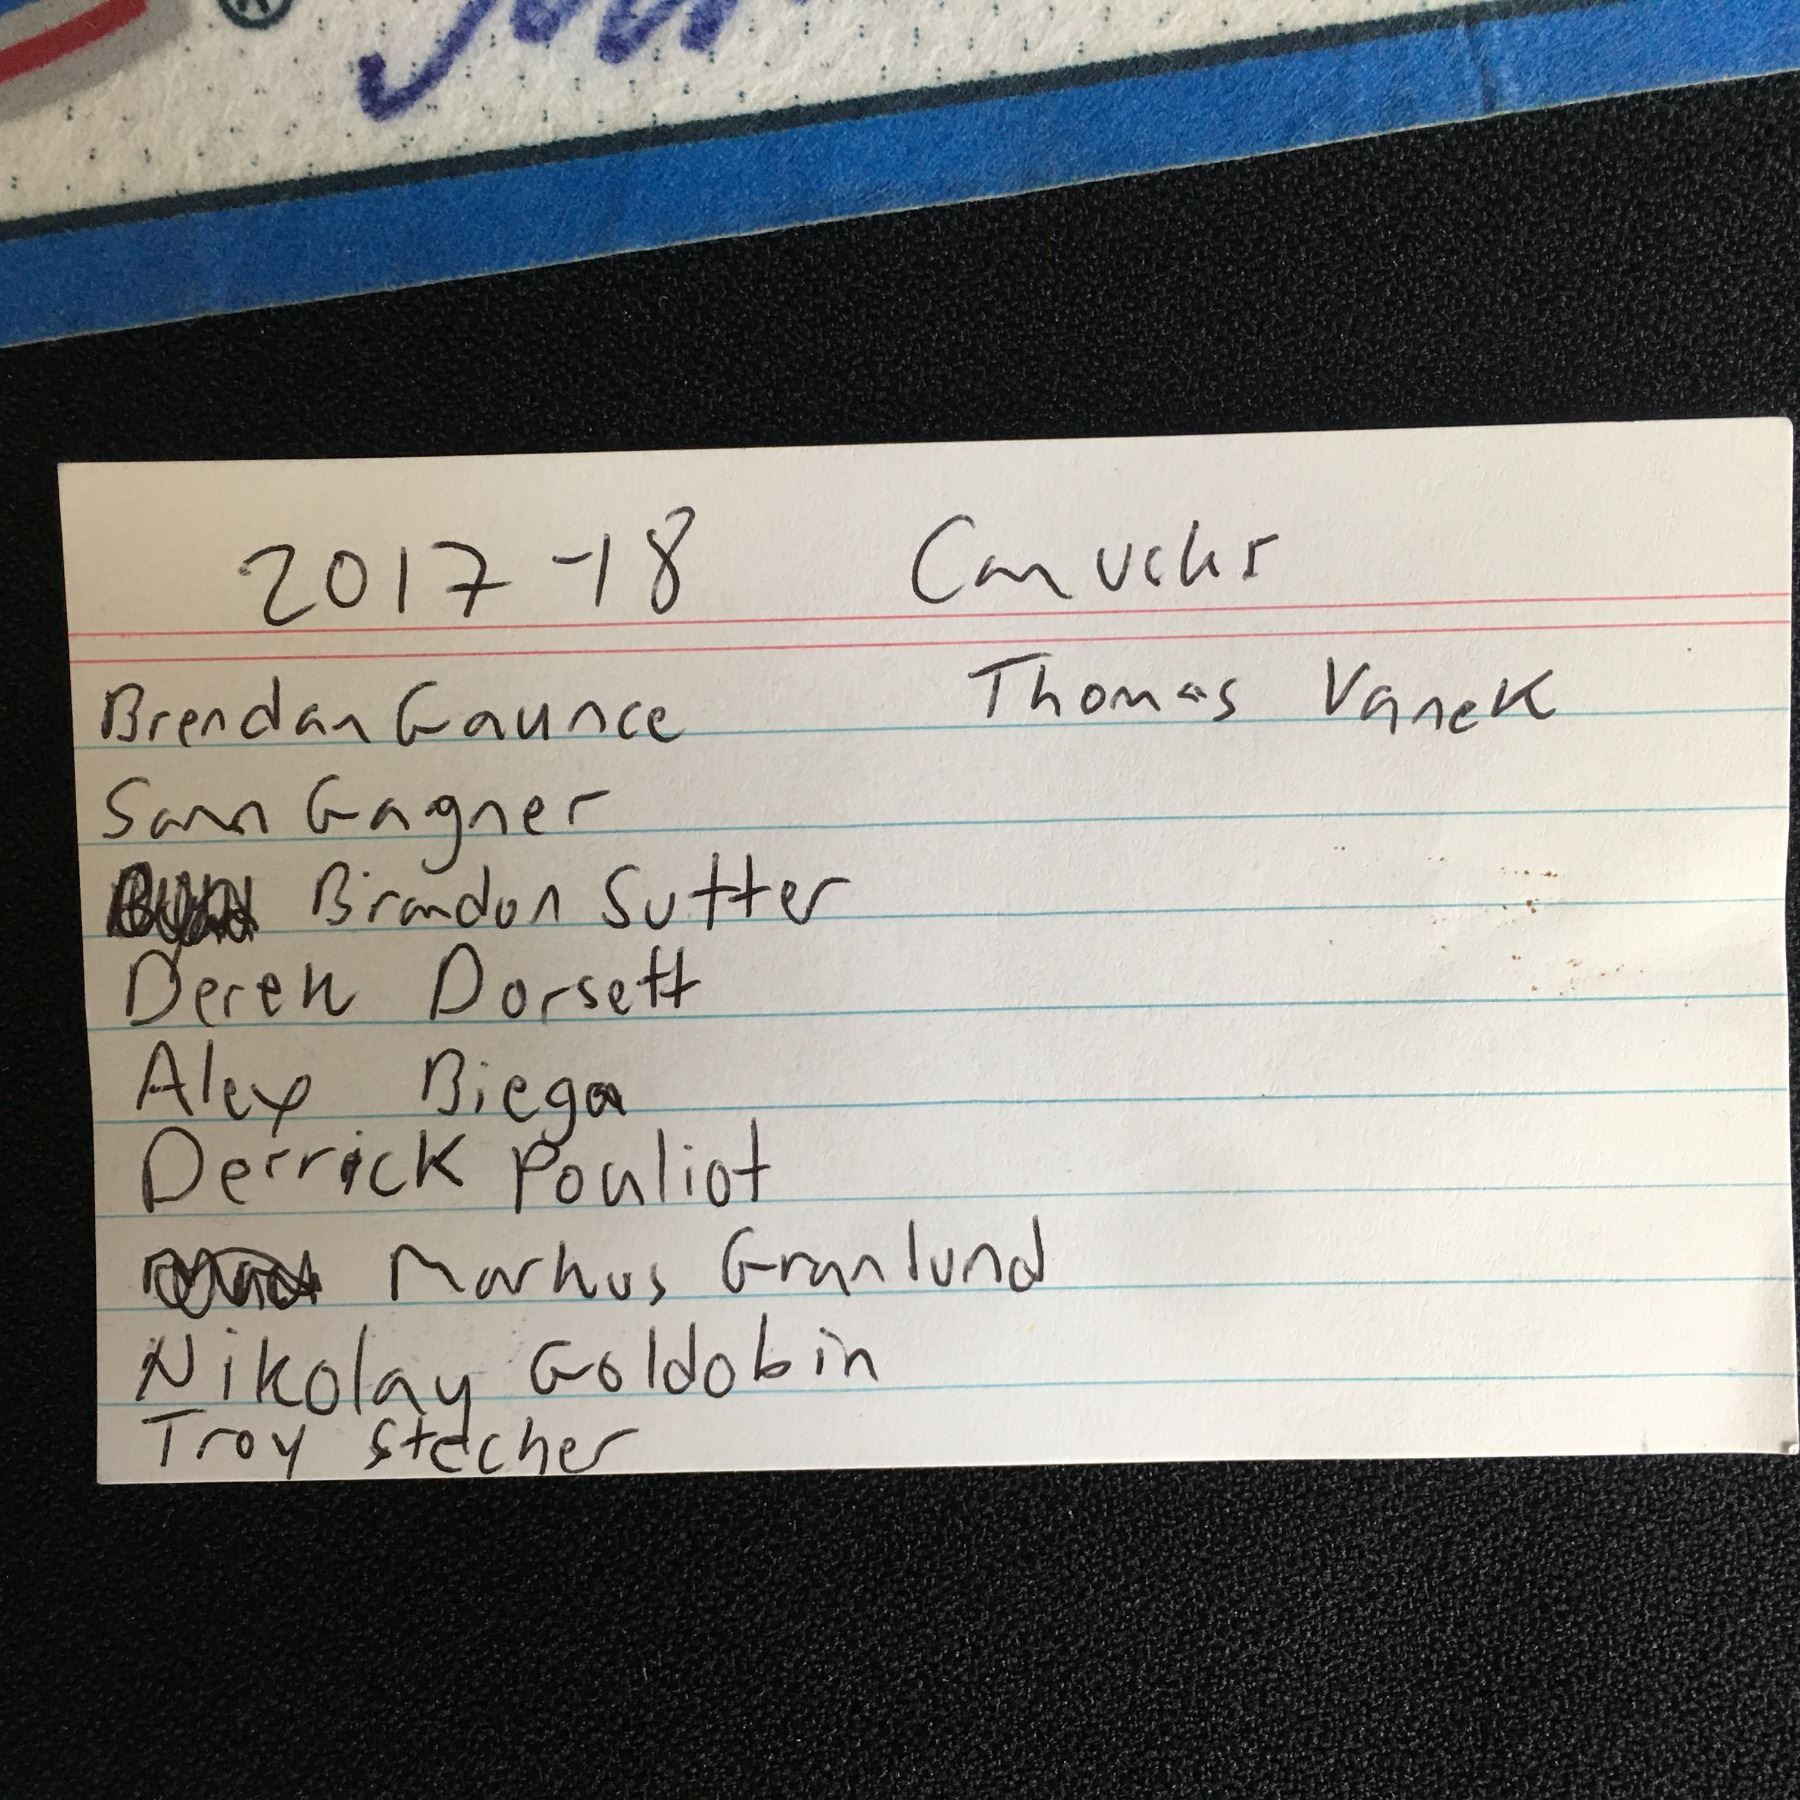 ®
2017-18 Canucks
Brendan Gaunce Thomas Vanek
Sam Gagner
Brandon Sutter
Derek Dorsett
Alex Biega
Derrick Pouliot
Markus Granlund
Nikolay Goldobin
Troy Stecher